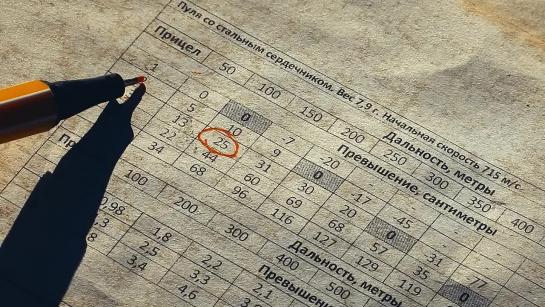 Пуля со стальным сердечником. Вес 7,9 г. Начальная скорость 715 м/с.
Прицел Дальность, метры
50 100 150 200 250 300 350 400
Превышение, сантиметры
1 0 0 -7 -20 - - -
5 10 9 0 -17 -45 -
13 25 31 30 20 0 -31 -77
22 44 60 69 68 57 35 0
34 68 96 116 127 129 119
Дальность, метры
100 200 300 400 500
Превышение
0,98 1,8 2,2 2,1
2,5 3,3
3,4 4,6